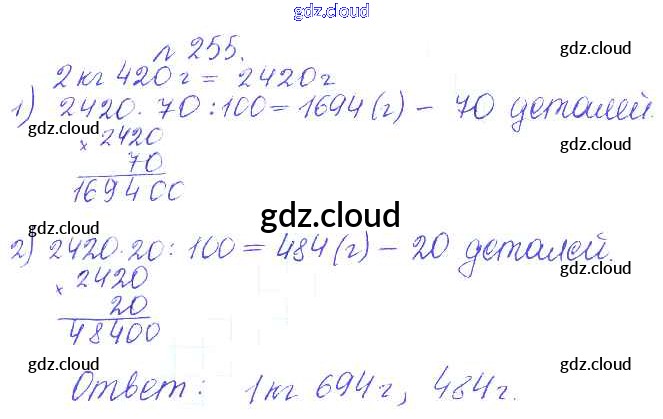 gdz.cloud
gdz.cloud gdz.cloud
№ 255.
gdz.cloud
2 кг 420 г = 2420 г
1) 2420 · 70 : 100 = 1694 (г) – 70 деталей.
gdz.cloud
× 2420
gdz.cloud
70
169400
gdz.cloud
gdz.cloud
2) 2420 · 20 : 100 = 484 (г) – 20 деталей.
gdz.cloud
× 2420
20
48400
gdz.cloud gdz.cloud
Ответ: 1 кг 694 г, 484 г.
gdz.cloud